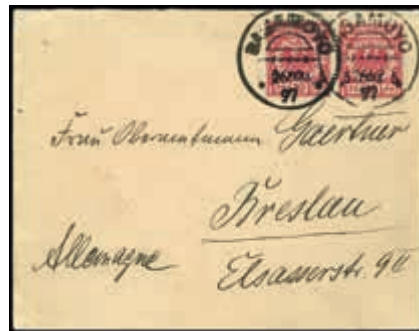 BAGAMOYO
97
BAGAMOYO
97
Frau Oberamtmann Gaertner
Breslau
Allemagne
Elsasserstr. 9II